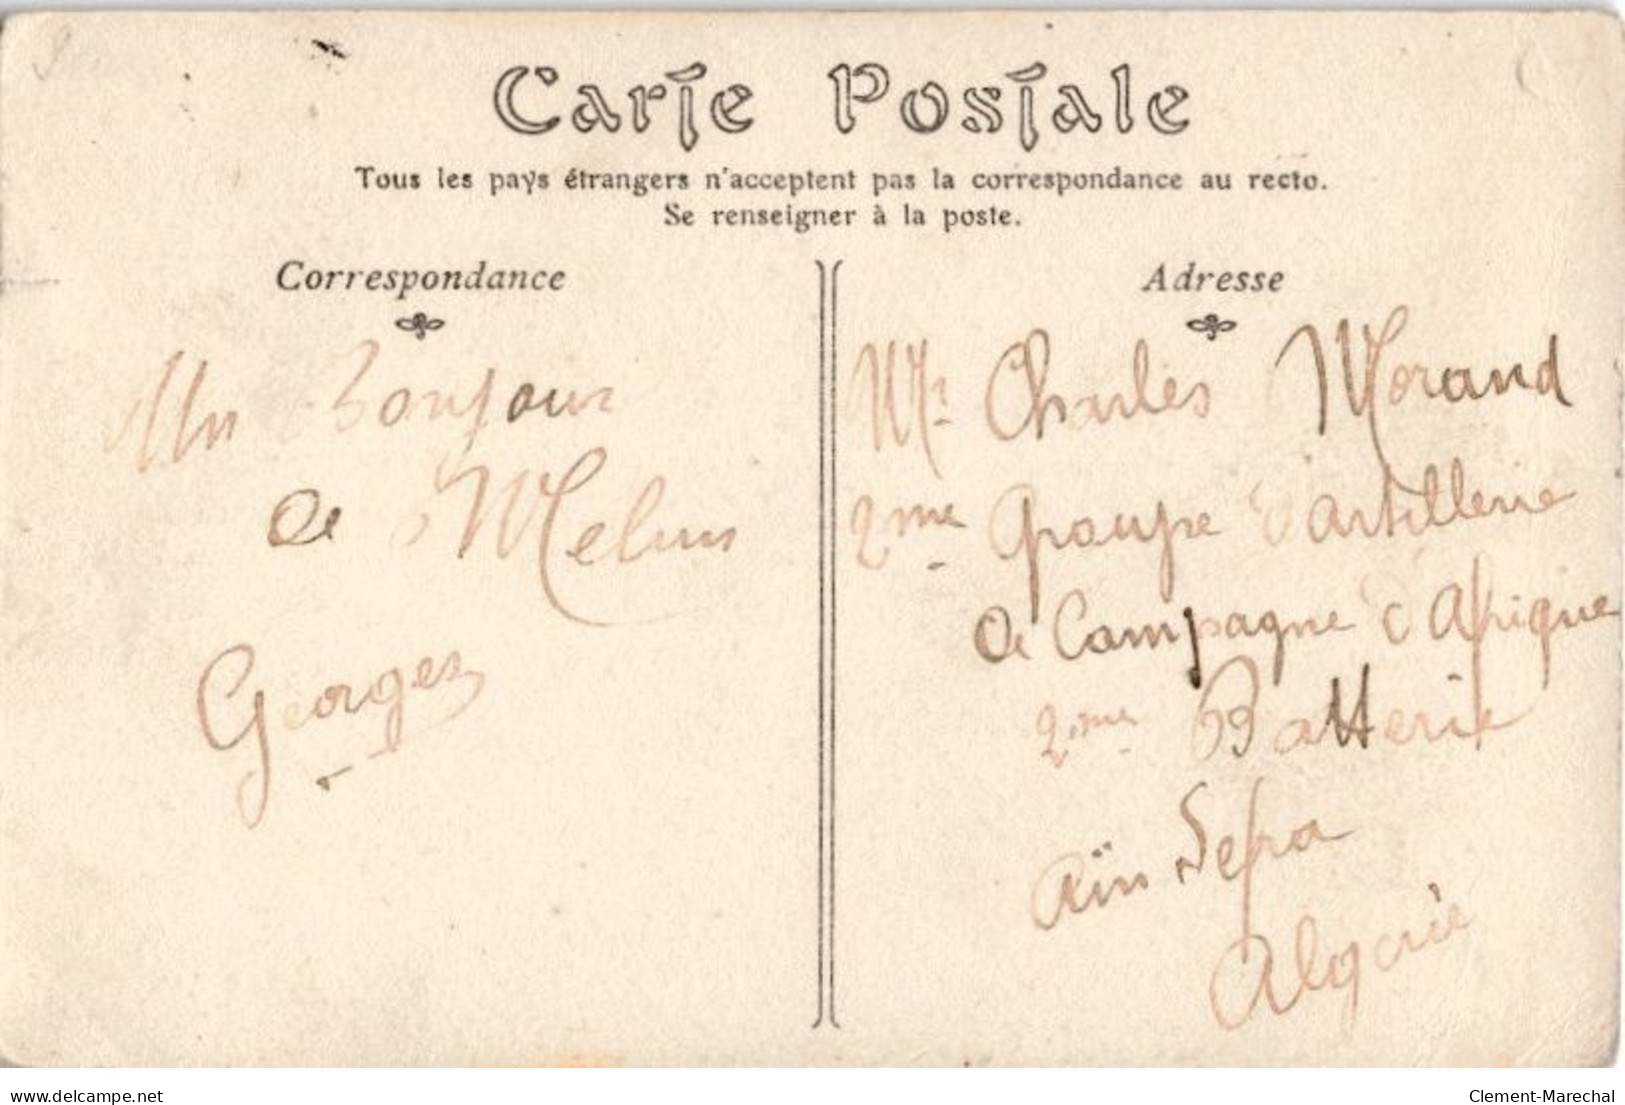 Carte Postale
Tous les pays étrangers n'acceptent pas la correspondance au recto.
Se renseigner à la poste.
Correspondance
Un Bonjour
de Melun
Georges
Adresse
Mr Charles Morand
2me Groupe d'artillerie
de Campagne d'Afrique
2me Batterie
Aïn Sefra
Algérie
delcampe.net
Clement-Marechal